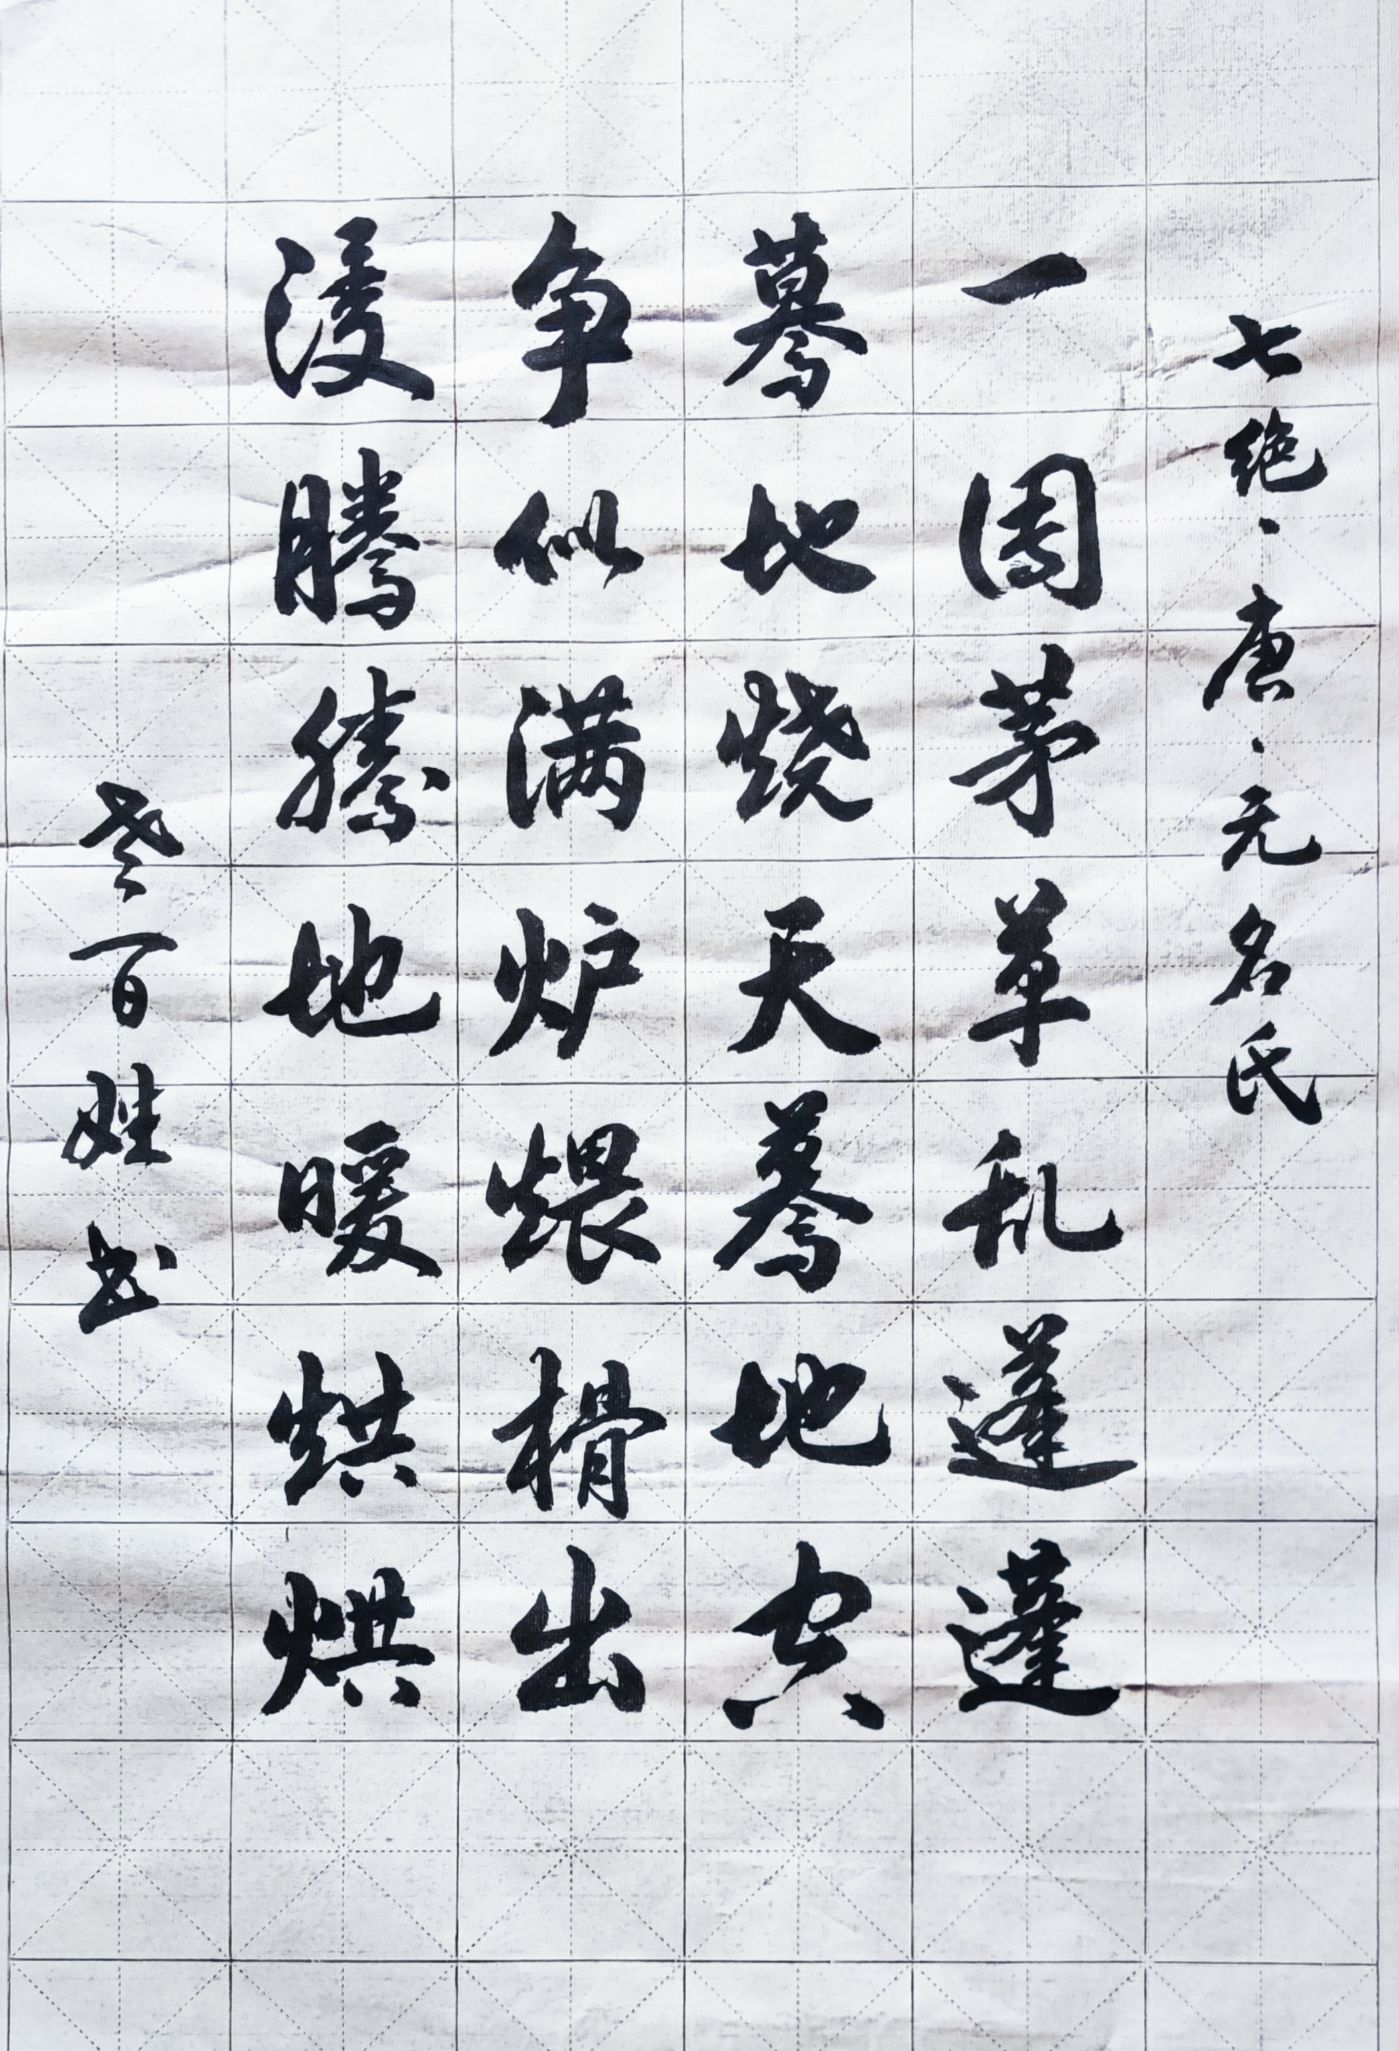 七绝·唐·无名氏
一团茅草乱蓬蓬
蓦地烧天蓦地空
争似满炉煨榾出
漫腾腾地暖烘烘
老百姓书